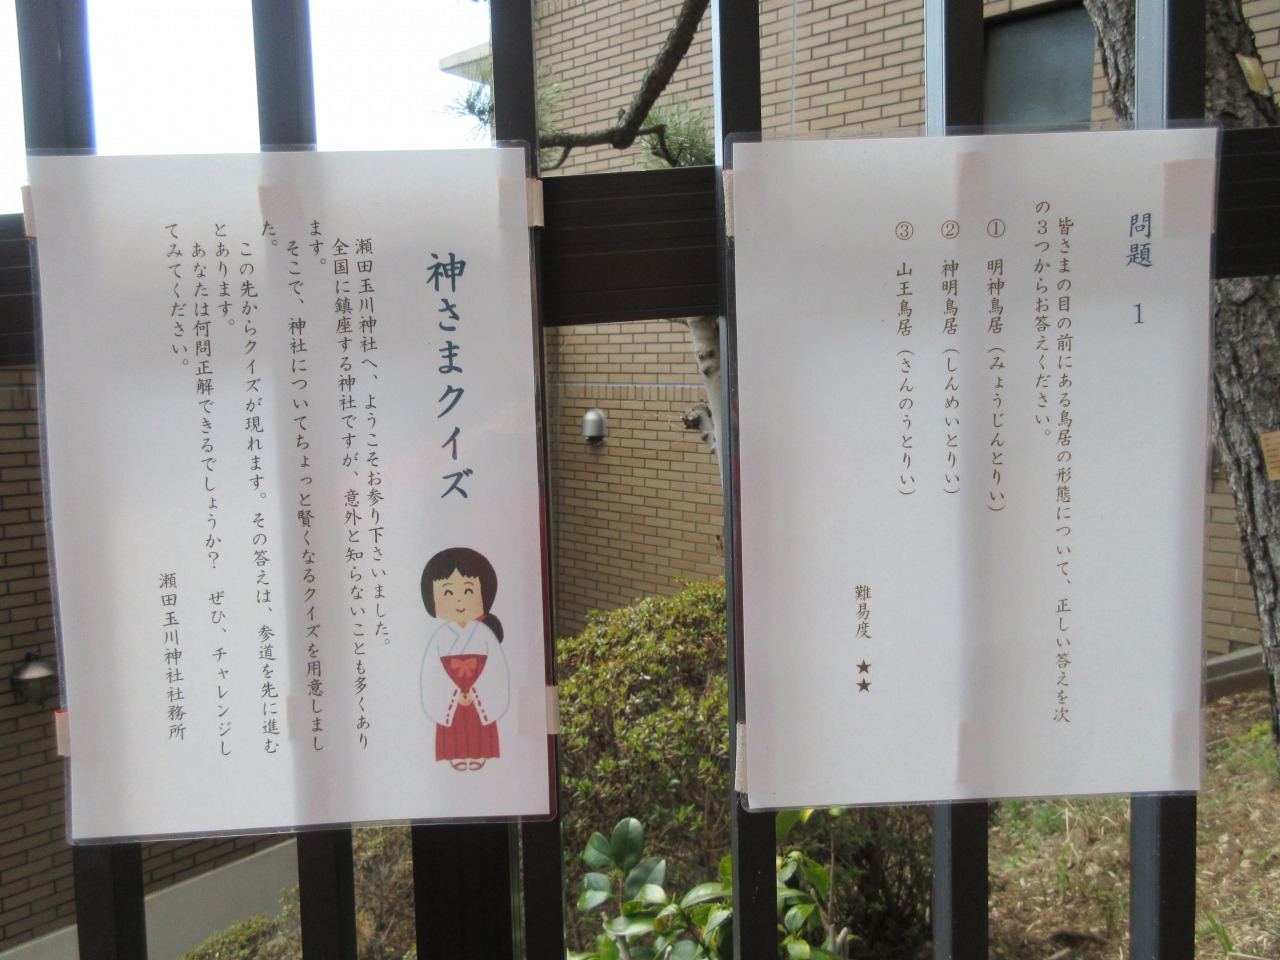 神さまクイズ
瀬田玉川神社へ、ようこそお参り下さいました。
全国に鎮座する神社ですが、意外と知らないことも多くあり
ます。
そこで、神社についてちょっと賢くなるクイズを用意しまし
た。
この先からクイズが現れます。その答えは、参道を先に進む
とあります。
あなたは何問正解できるでしょうか？　ぜひ、チャレンジし
てみてください。
瀬田玉川神社社務所
問題　1
皆さまの目の前にある鳥居の形態について、正しい答えを次
の3つからお答えください。
① 明神鳥居（みょうじんとりい）
② 神明鳥居（しんめいとりい）
③ 山王鳥居（さんのうとりい）
難易度　★★